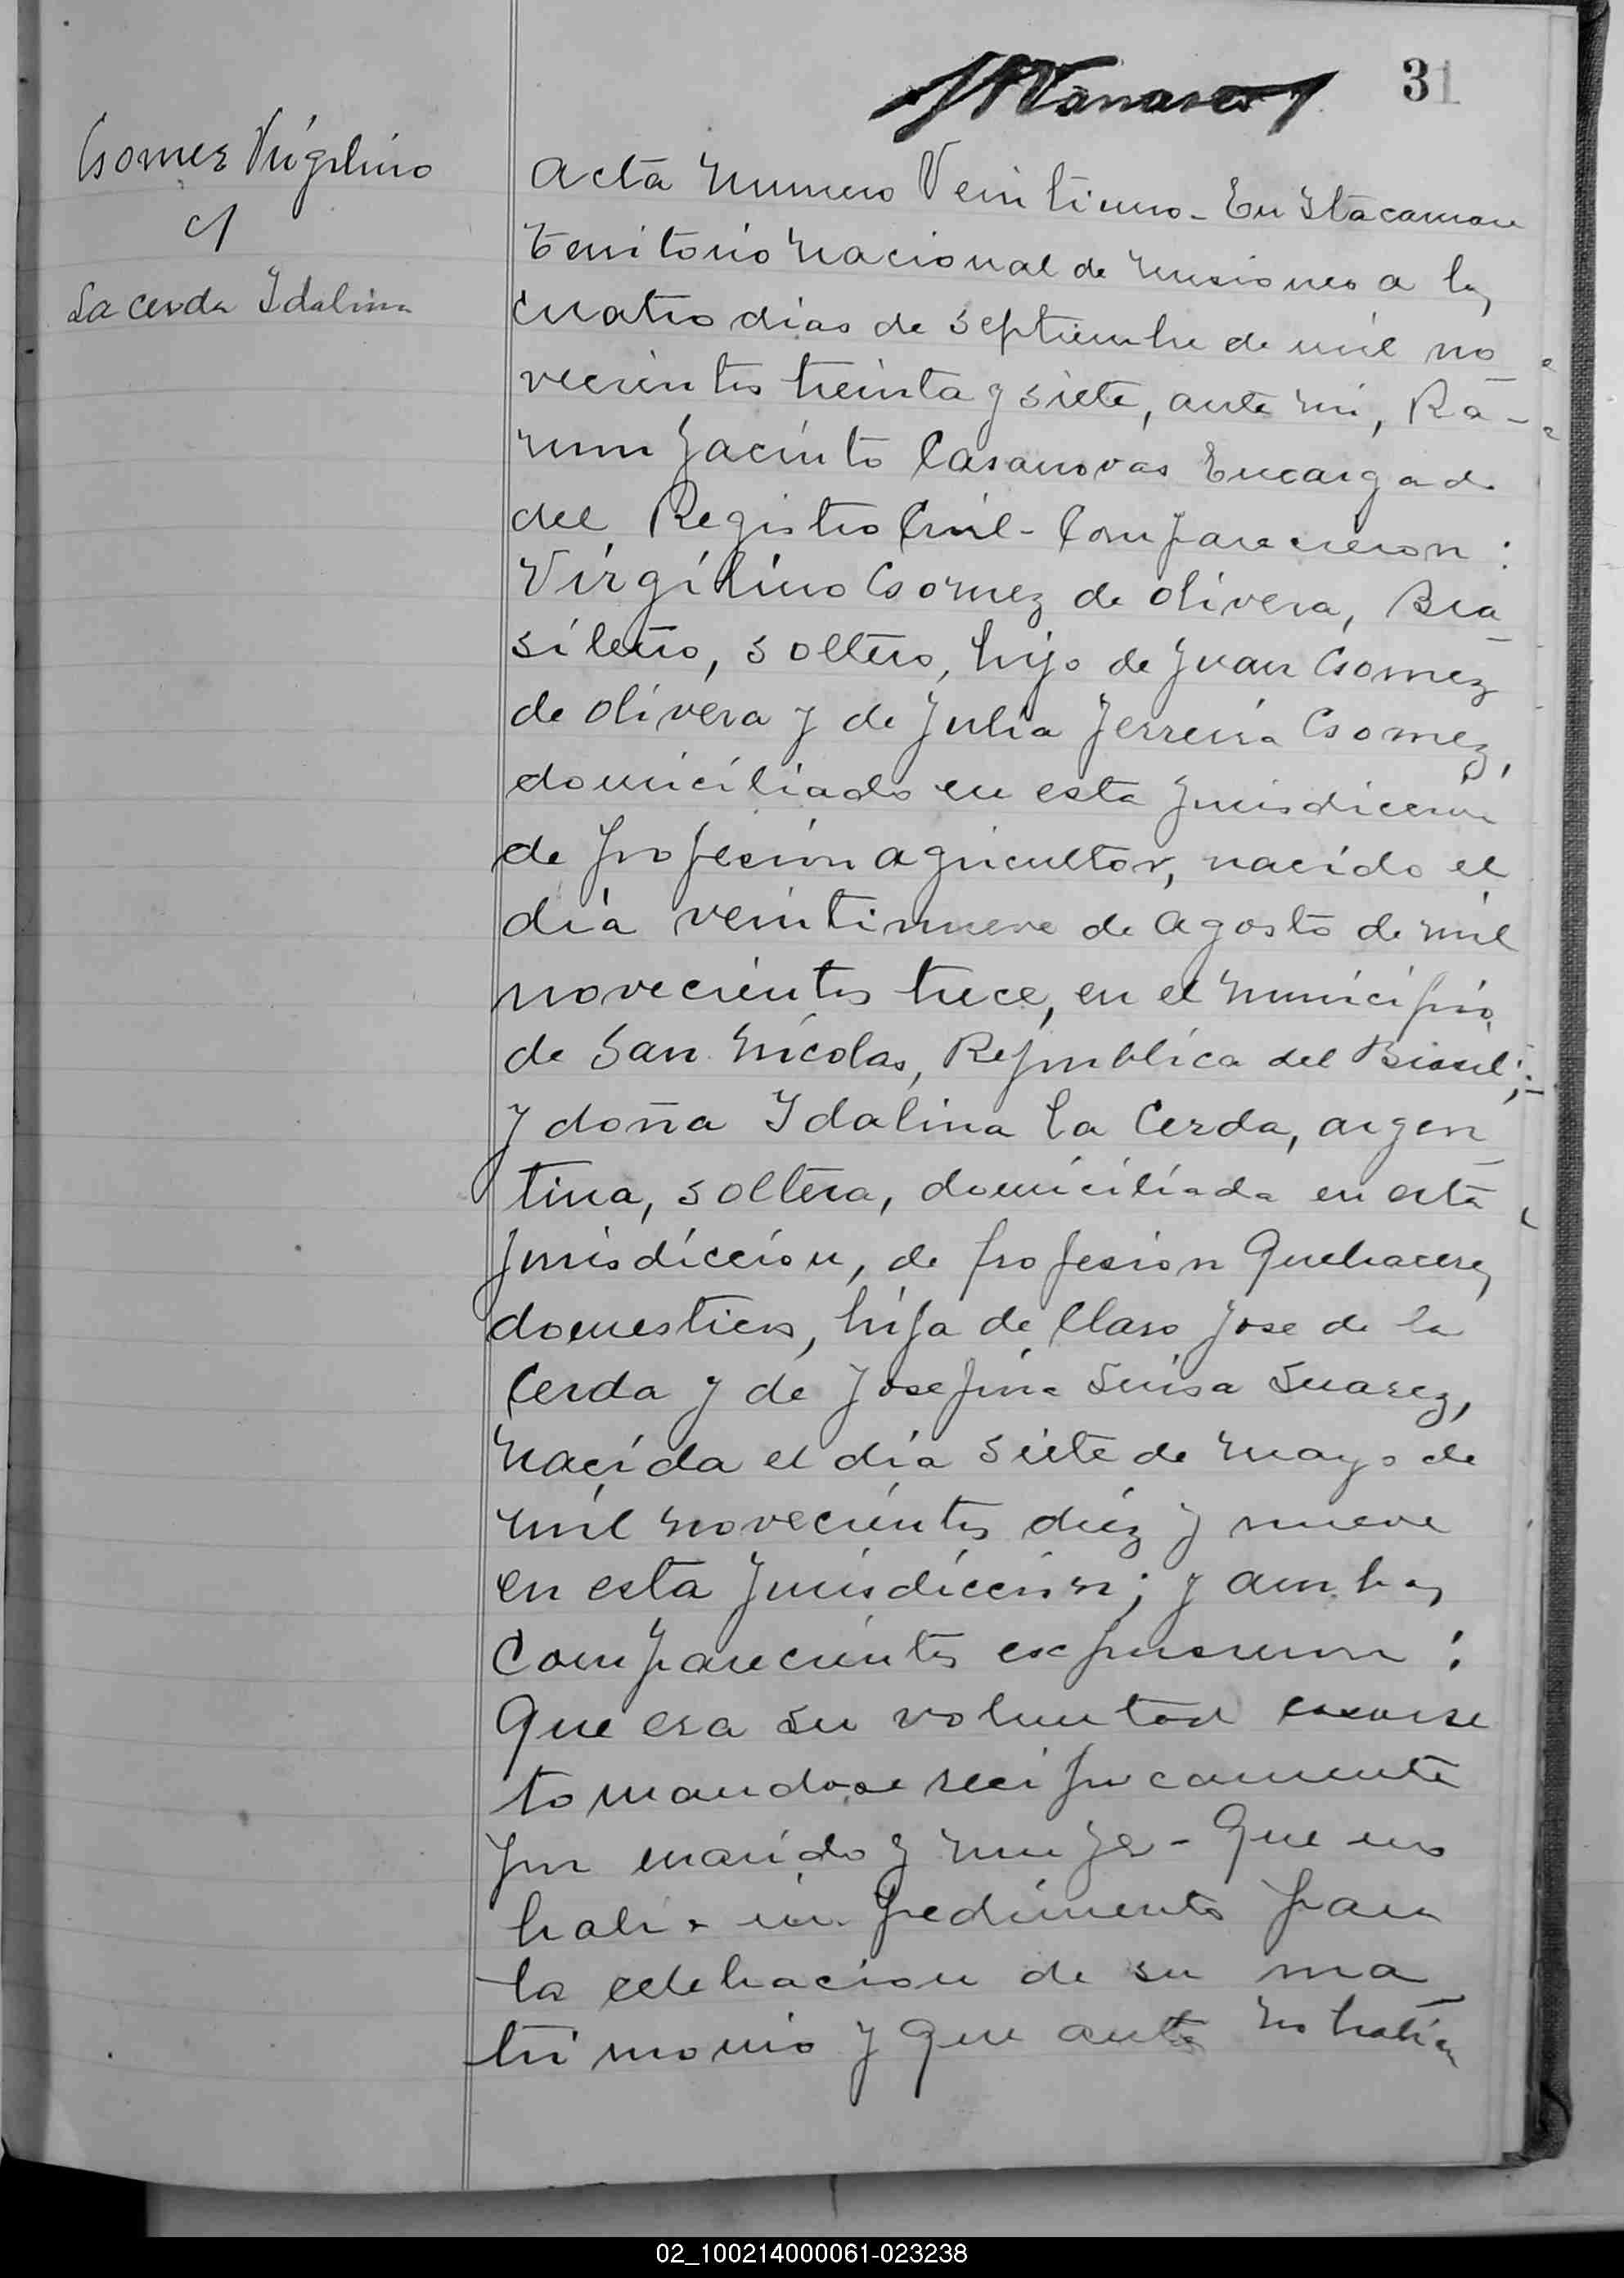 31
Gomez Virgilino
c/
La cerda Ydalina
Acta numero Veintiuno - En Itacaruare
territorio nacional de misiones a los
cuatro dias de septiembre de mil no
vecientos treinta y siete, ante mi, Ra-
mon Jacinto Casanovas Encargado
del Registro Civil - Comparecieron :
Virgilino Gomez de olivera, Bra
sileño, soltero, hijo de Juan Gomez
de olivera y de Julia Ferreira Gomez,
domiciliado en esta Jurisdiccion
de profesion agricultor, nacido el
dia veintinueve de agosto de mil
novecientos trece, en el municipio
de San Nicolas, Republica del Brasil;-
y doña Ydalina La Cerda, argen
tina, soltera, domiciliada en esta
Jurisdiccion, de profesion Quehaceres
domesticos, hija de Claro Jose de la
Cerda y de Josefina Luisa Suarez,
nacida el dia siete de mayo de
mil novecientos diez y nueve
en esta Jurisdiccion; y ambos
Comparecientes expusieron :
Que era su voluntad casarse
tomandose reciprocamente
por marido y mujer - Que no
habia impedimento para
la celebracion de su ma
trimonio y que ante no habian
02_100214000061-023238